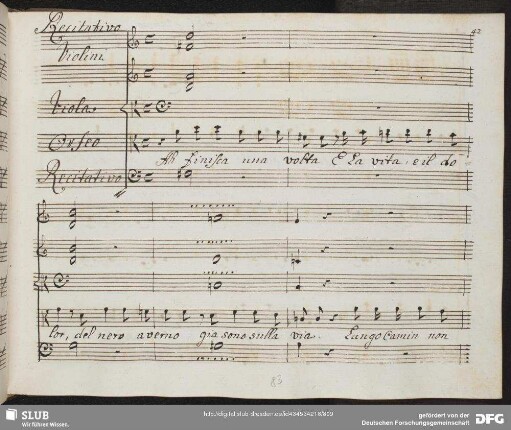 Recitativo
42
Violini
Viola
Orfeo
Ah finisca una volta E La vita, e il do
Recitativo
lor, del nero averno gia sono sulla via. Lungo Camin non
83
SLUB
Wir führen Wissen.
gefördert von der
Deutschen Forschungsgemeinschaft
DFG